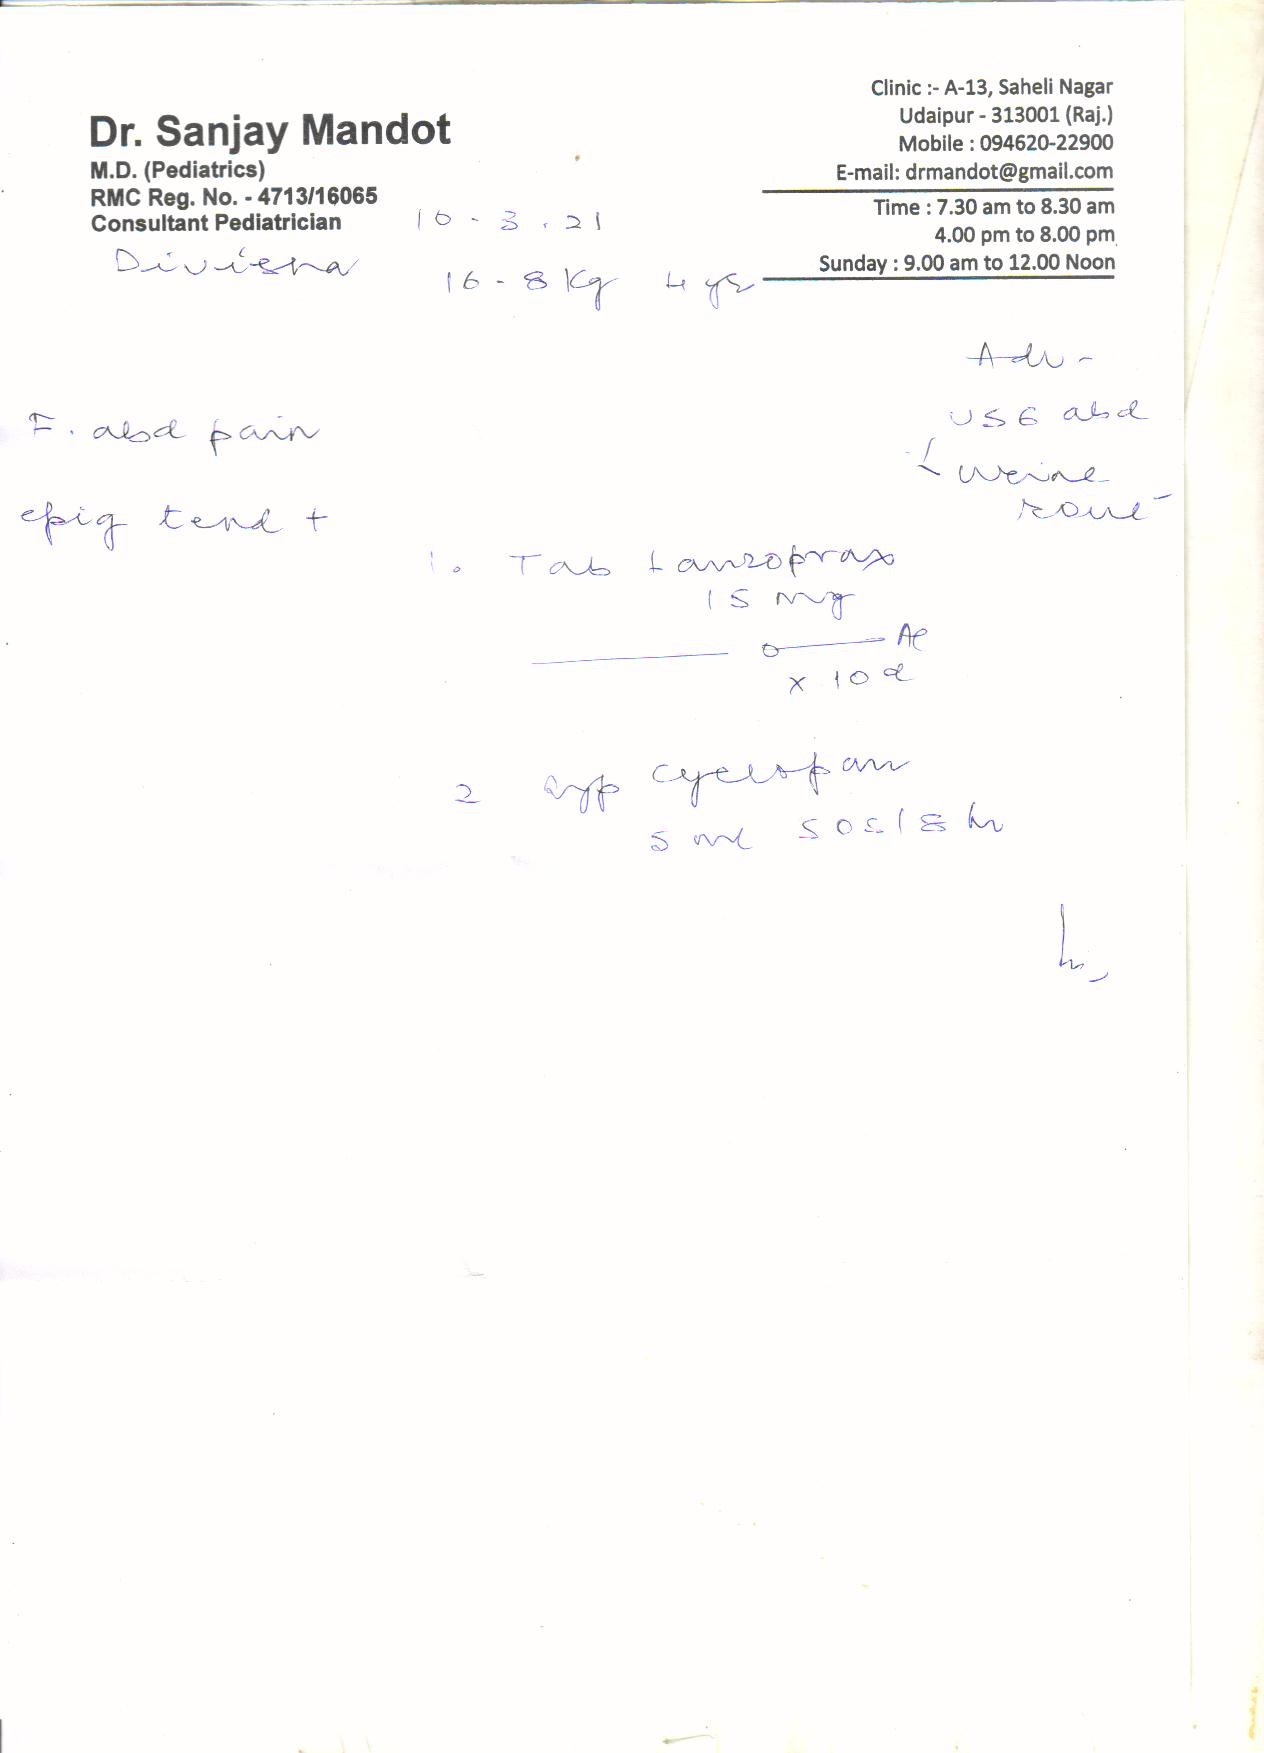 Dr. Sanjay Mandot
M.D. (Pediatrics)
RMC Reg. No. - 4713/16065
Consultant Pediatrician
Clinic :- A-13, Saheli Nagar
Udaipur - 313001 (Raj.)
Mobile : 094620-22900
E-mail: drmandot@gmail.com
Time : 7.30 am to 8.30 am
4.00 pm to 8.00 pm
Sunday : 9.00 am to 12.00 Noon
10-3.21
16-8 Kg 4 yr
Adv -
USG abd
abd pain
urine
epig tend +
1. Tab Lanzoprax
15 mg
x 10 d
2 Syp cyclopam
5 ml SOS/8 h